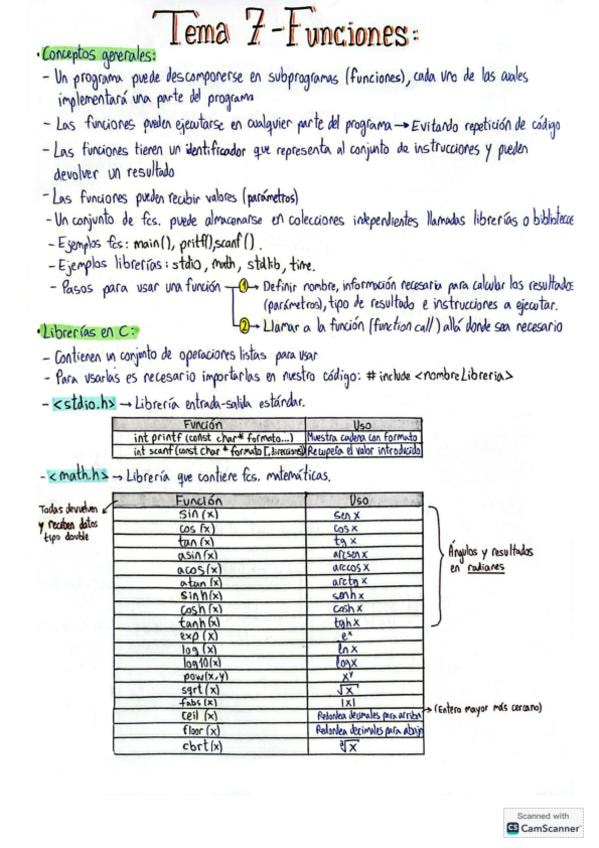 Tema 7-Funciones:
·Conceptos generales:
- Un programa puede descomponerse en subprogramas (funciones), cada uno de las cuales
implementará una parte del programa
- Las funciones pueden ejecutarse en cualquier parte del programa → Evitando repetición de código
- Las funciones tienen un identificador que representa al conjunto de instrucciones y pueden
devolver un resultado
- Las funciones pueden recibir valores (parámetros)
- Un conjunto de fcs. puede almacenarse en colecciones independientes llamadas librerías o bibliotecas
- Ejemplos fcs: main(), pritf(),scanf().
- Ejemplos librerías: stdio, math, stdlib, time.
- Pasos para usar una función 1→ Definir nombre, información necesaria para calcular los resultados
(parámetros), tipo de resultado e instrucciones a ejecutar.
2→ Llamar a la función (function call) allá donde sea necesario
·Librerías en C:
- Contienen un conjunto de operaciones listas para usar
- Para usarlas es necesario importarlas en nuestro código: #include <nombreLibreria>
- <stdio.h> → Librería entrada-salida estándar.
Función Uso
int printf (const char* formato...) Muestra cadena con formato
int scanf (const char * formato [, direcciones]) Recupera el valor introducido
- <math.h> → Librería que contiene fcs. matemáticas.
Todas devuelven
y reciben datos
tipo double
Función Uso
sin (x) sen x
cos (x) cos x
tan (x) tg x
asin (x) arcsen x
acos (x) arccos x
atan (x) arctg x
sinh (x) senh x
cosh (x) cosh x
tanh (x) tgh x
Ángulos y resultados
en radianes
exp (x) eˣ
log (x) ln x
log10 (x) log x
pow(x,y) xʸ
sqrt (x) √x
fabs (x) |x|
ceil (x) Redondea decimales para arriba → (Entero mayor más cercano)
floor (x) Redondea decimales para abajo
cbrt (x) ∛x
Scanned with
CS CamScanner